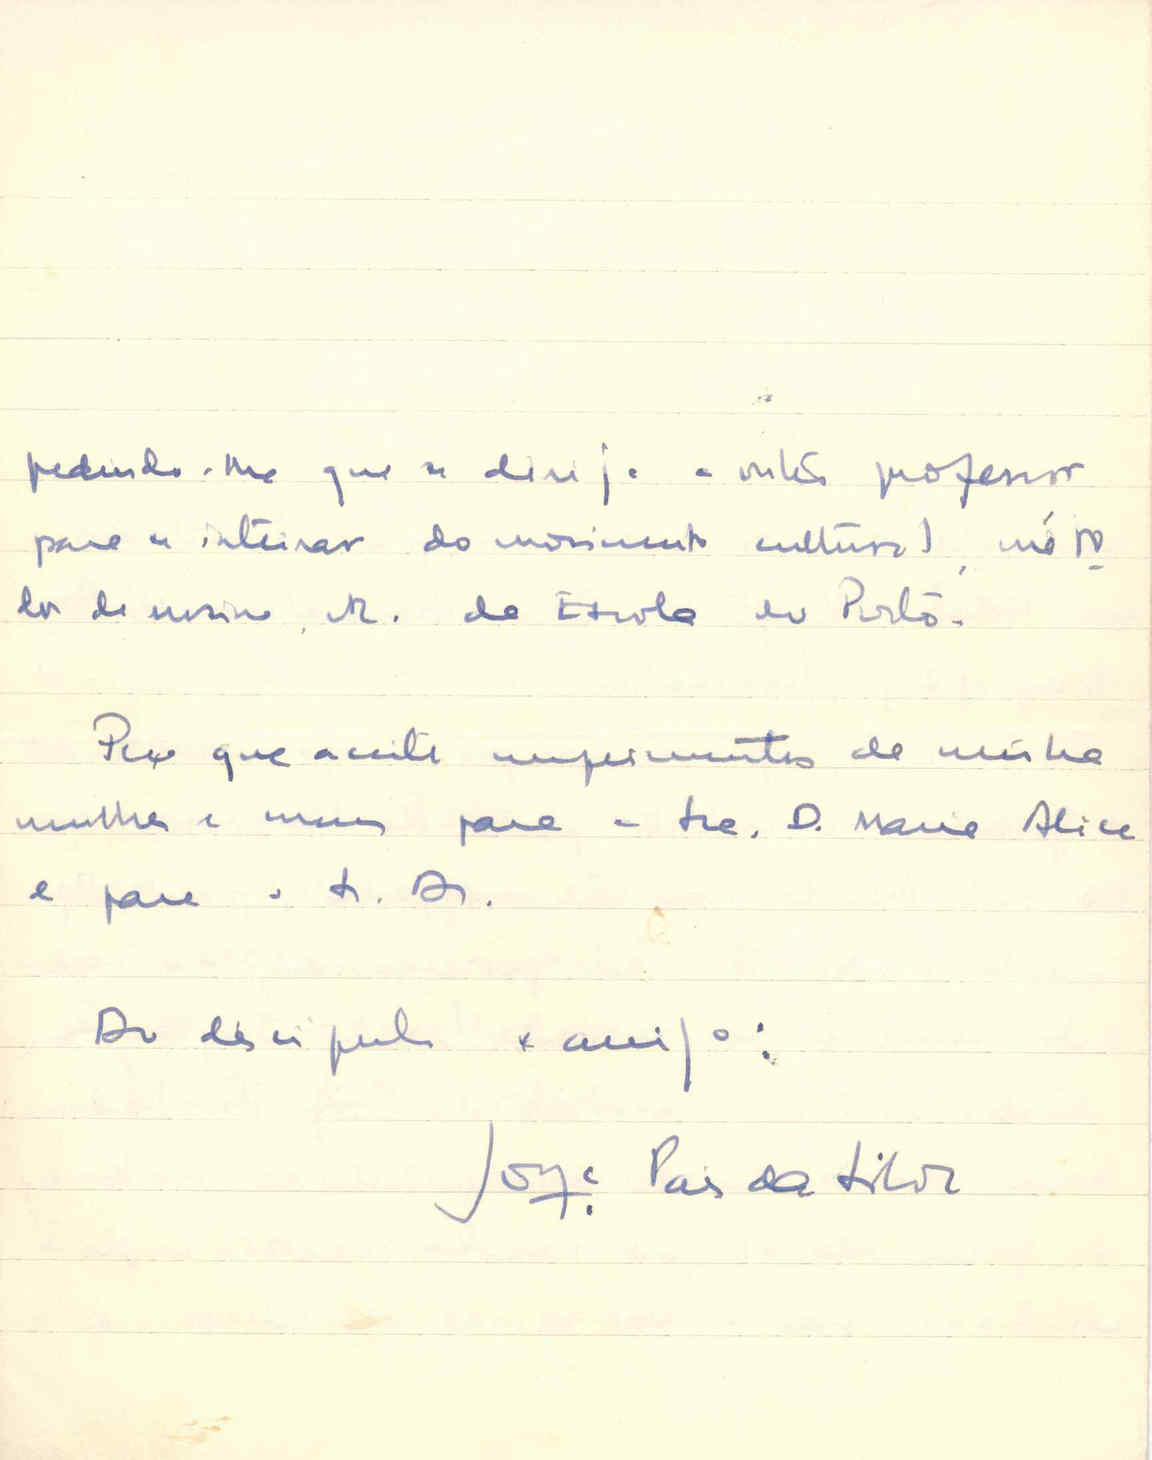 pedindo-lhe que se dirija a outro professor
para se inteirar do movimento cultural, méto-
dos de ensino, etc. da Escola do Porto.
Peço que aceite cumprimentos de minha
mulher e meus para a Sra. D. Maria Alice
e para o Sr. Dr.
Do discípulo e amigo:
Jorge Pais da Silva